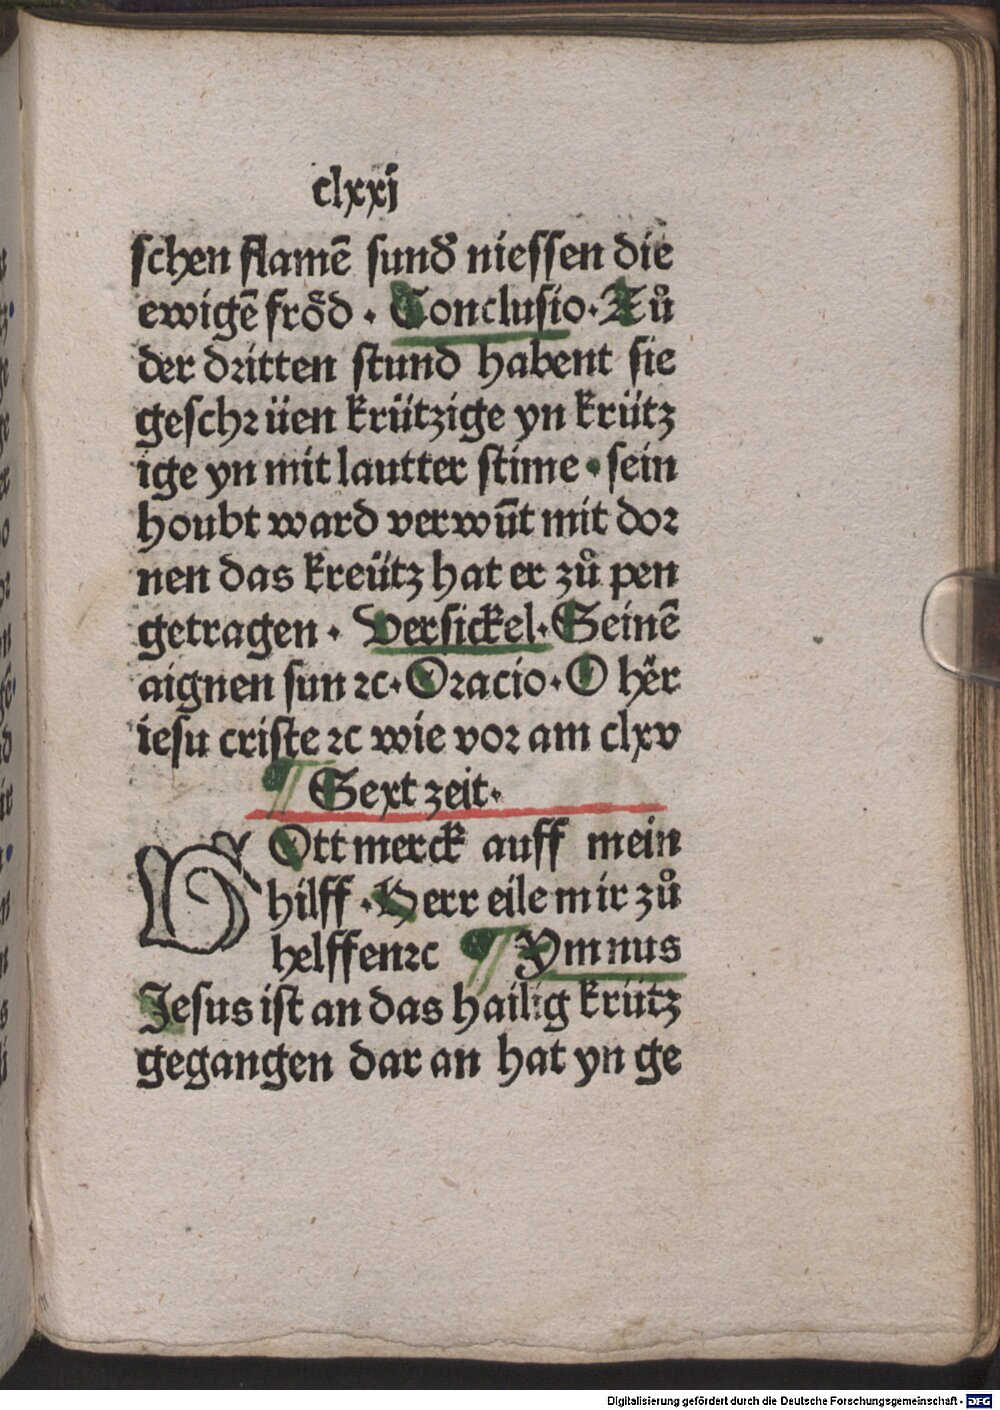 clxxi
schen flamē sund̄ niessen die
ewigē frőd · Conclusio · Zů
der dritten stund habent sie
geschrüen krützige yn krütz
ige yn mit lautter stime · sein
houbt ward verwūt mit dor
nen das kreütz hat er zů pen
getragen · Versickel · Seinē
aignen sun ꝛc · Oracio · O hër
iesu criste ꝛc wie vor am clxv
¶ Sext zeit ·
Ott merck auff mein
hilff · Herr eile mir zů
helffen ꝛc ¶ Ymnus
Jesus ist an das hailig krütz
gegangen dar an hat yn ge
Digitalisierung gefördert durch die Deutsche Forschungsgemeinschaft - DFG